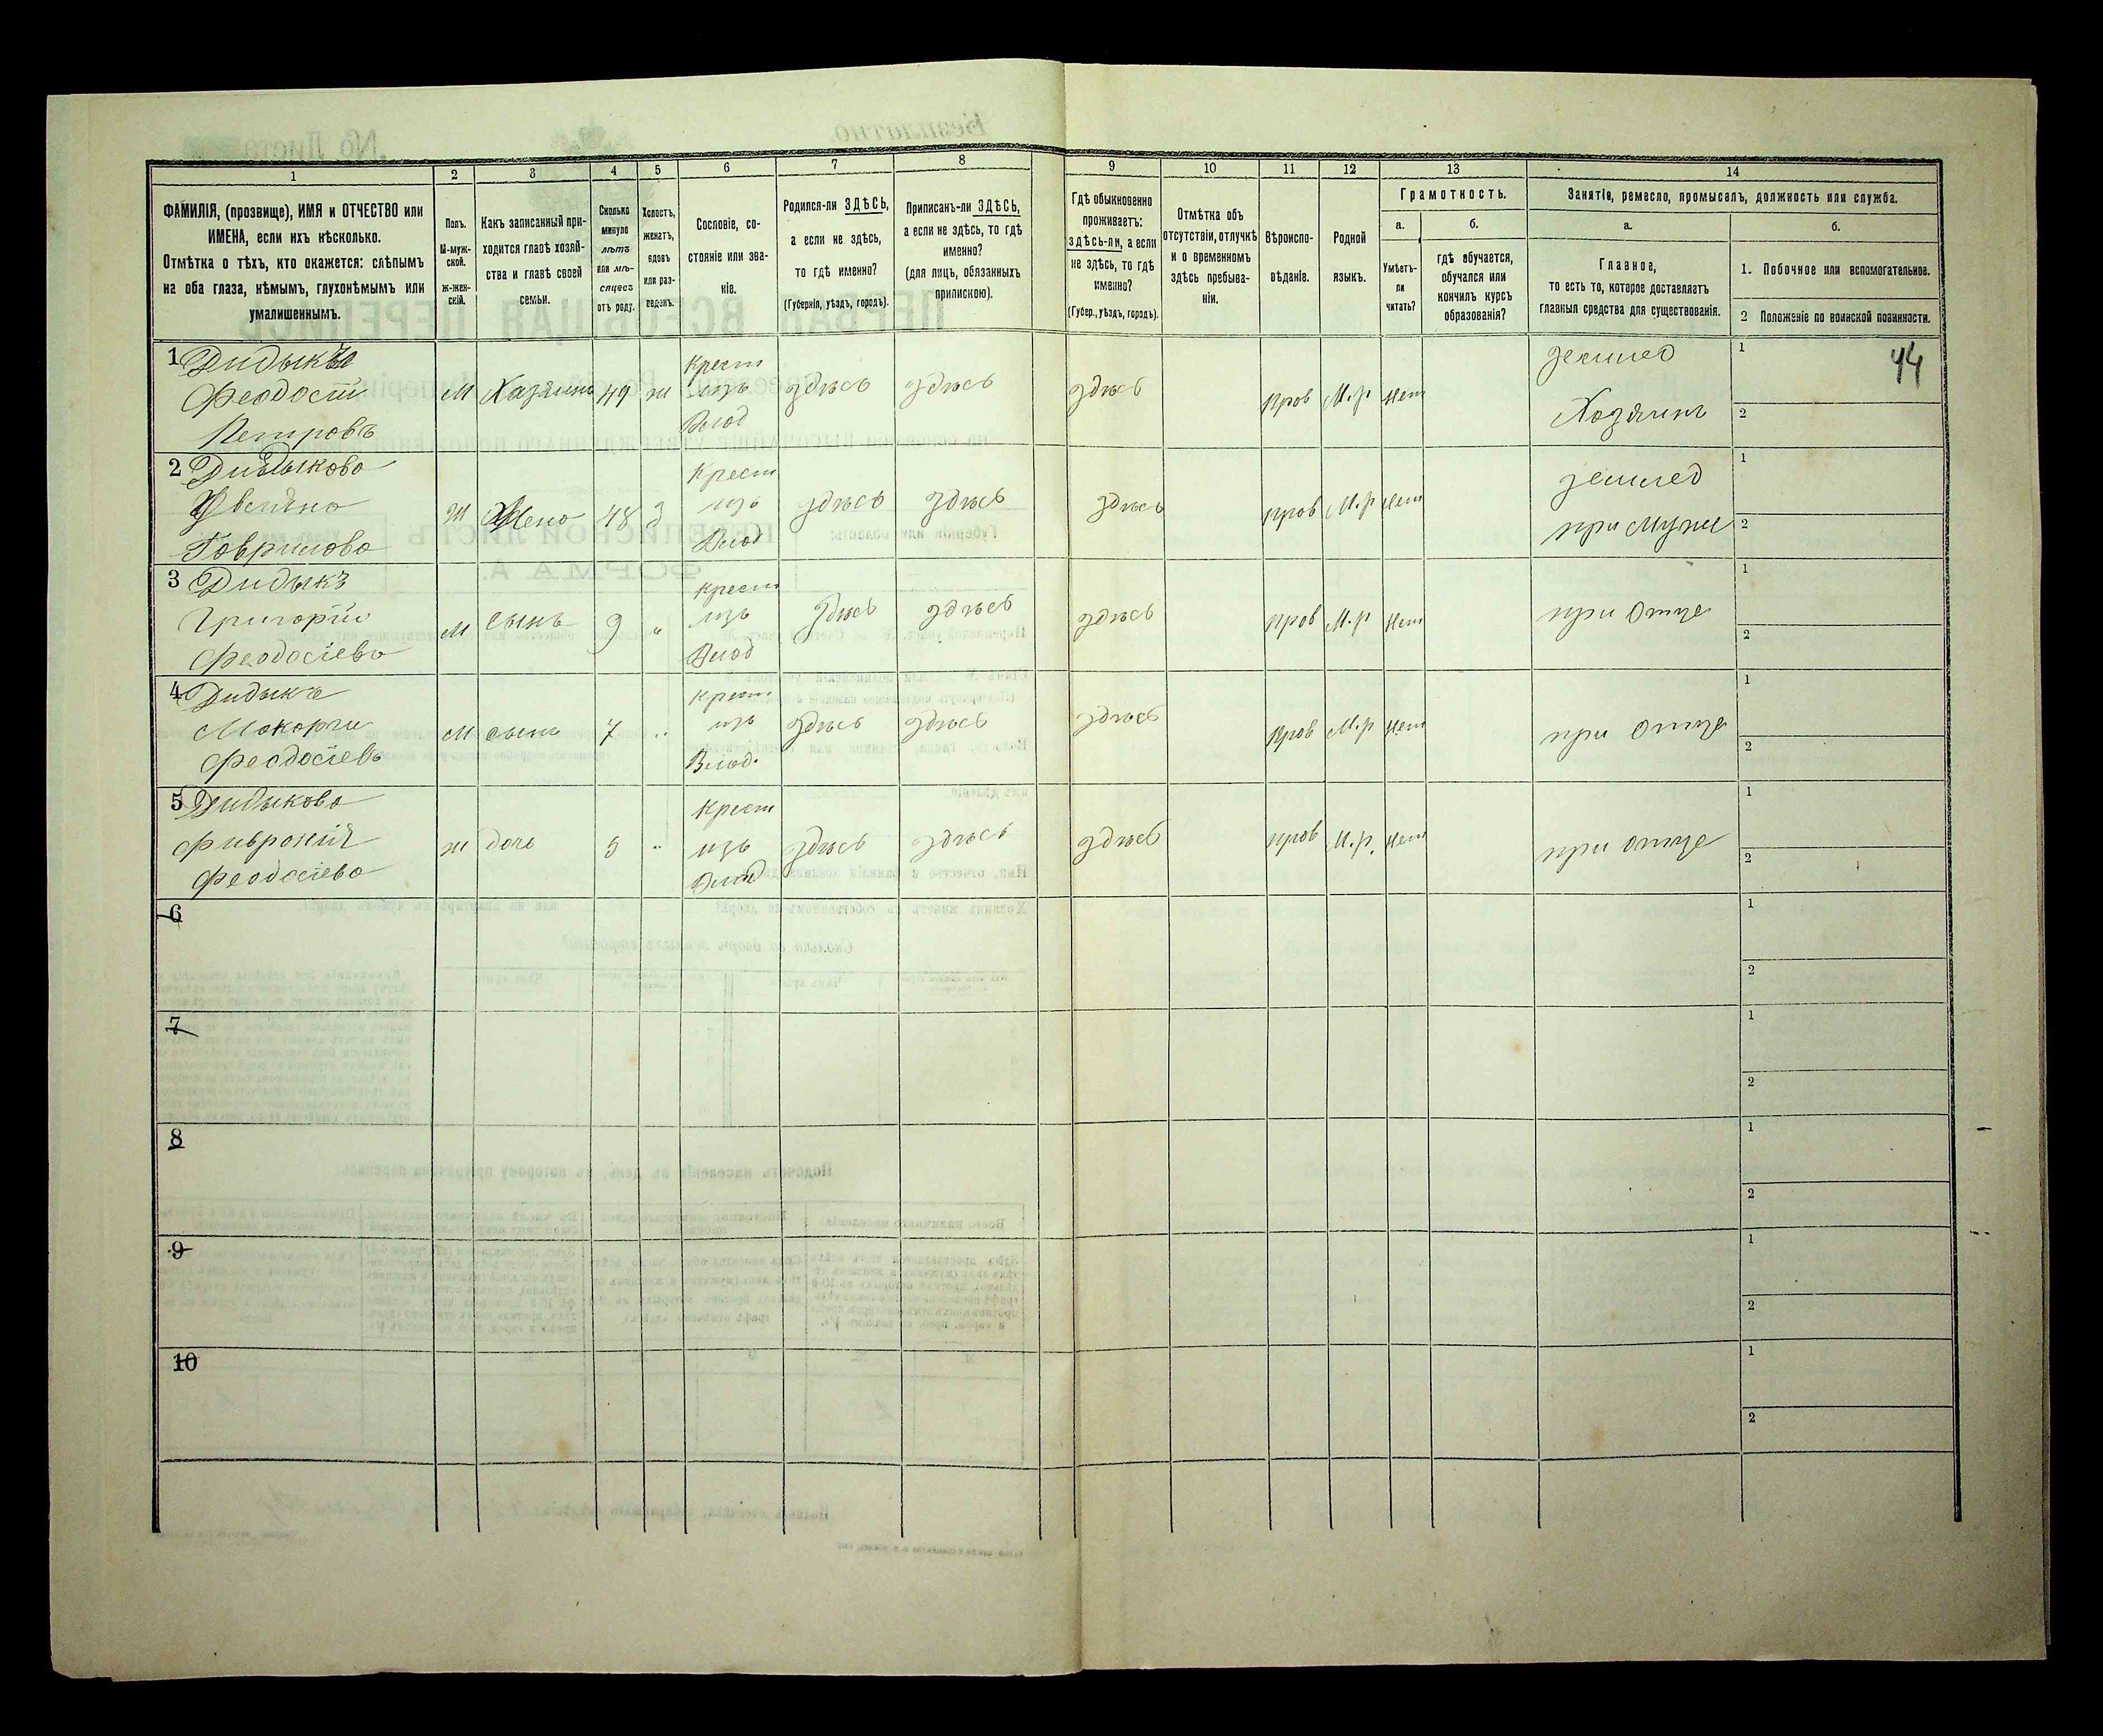 1
2
3
4
5
6
7
8
9
10
11
12
13
14
ФАМИЛІЯ, (прозвище), ИМЯ и ОТЧЕСТВО или
ИМЕНА, если ихъ нѣсколько.
Отмѣтка о тѣхъ, кто окажется: слѣпымъ
на оба глаза, нѣмымъ, глухонѣмымъ или
умалишеннымъ.
Полъ.
М-муж-
ской.
ж-жен-
скій.
Какъ записанный при-
ходится главѣ хозяй-
ства и главѣ своей
семьи.
Сколько
минуло
лѣтъ
или мѣ-
сяцевъ
отъ роду.
Холостъ,
женатъ,
вдовъ
или раз-
веденъ.
Сословіе, со-
стояніе или зва-
ніе.
Родился-ли ЗДѢСЬ,
а если не здѣсь,
то гдѣ именно?
(Губернія, уѣздъ, городъ).
Приписанъ-ли ЗДѢСЬ,
а если не здѣсь, то гдѣ
именно?
(для лицъ, обязанныхъ
припискою).
Гдѣ обыкновенно
проживаетъ:
здѣсь-ли, а если
не здѣсь, то гдѣ
именно?
(Губер., уѣздъ, городъ).
Отмѣтка объ
отсутствіи, отлучкѣ
и о временномъ
здѣсь пребыва-
ніи.
Вѣроиспо-
вѣданіе.
Родной
языкъ.
Грамотность.
а.
Умѣетъ-
ли
читать?
б.
гдѣ обучается,
обучался или
кончилъ курсъ
образованія?
Занятіе, ремесло, промыселъ, должность или служба.
а.
Главное,
то есть то, которое доставляетъ
главныя средства для существованія.
б.
1. Побочное или вспомогательное.
2 Положеніе по воинской повинности.
44
1 Дидыкъ
Феодосій
Петровъ
М Хазяинъ 49 ж
Крест
изъ
Влад
здѣсь здѣсь здѣсь Прав М.р Нет
землед
Хозяинъ
1
2
2 Дидыкова
Гаврилова
Ж Жена 48 З
Крест
изъ
Влад
здѣсь здѣсь здѣсь Прав М.р Нет
землед
при мужи
1
2
3 Дидыкъ
Григорій
Феодосіевъ
М Сынъ 9 "
Крест
изъ
Влад
здѣсь здѣсь здѣсь Прав М.р Нет
при Отце
1
2
4 Дидыкъ
Макарій
Феодосіевъ
М сынъ 7 "
Крест
изъ
Влад.
здѣсь здѣсь здѣсь Прав М.р Нет
при Отце
1
2
5 Дидыкова
Февронія
Феодосіева
ж дочь 5 "
Крест
изъ
Влад
здѣсь здѣсь здѣсь Прав М.р. Нет
при отце
1
2
6
1
2
7
1
2
8
1
2
9
1
2
10
1
2